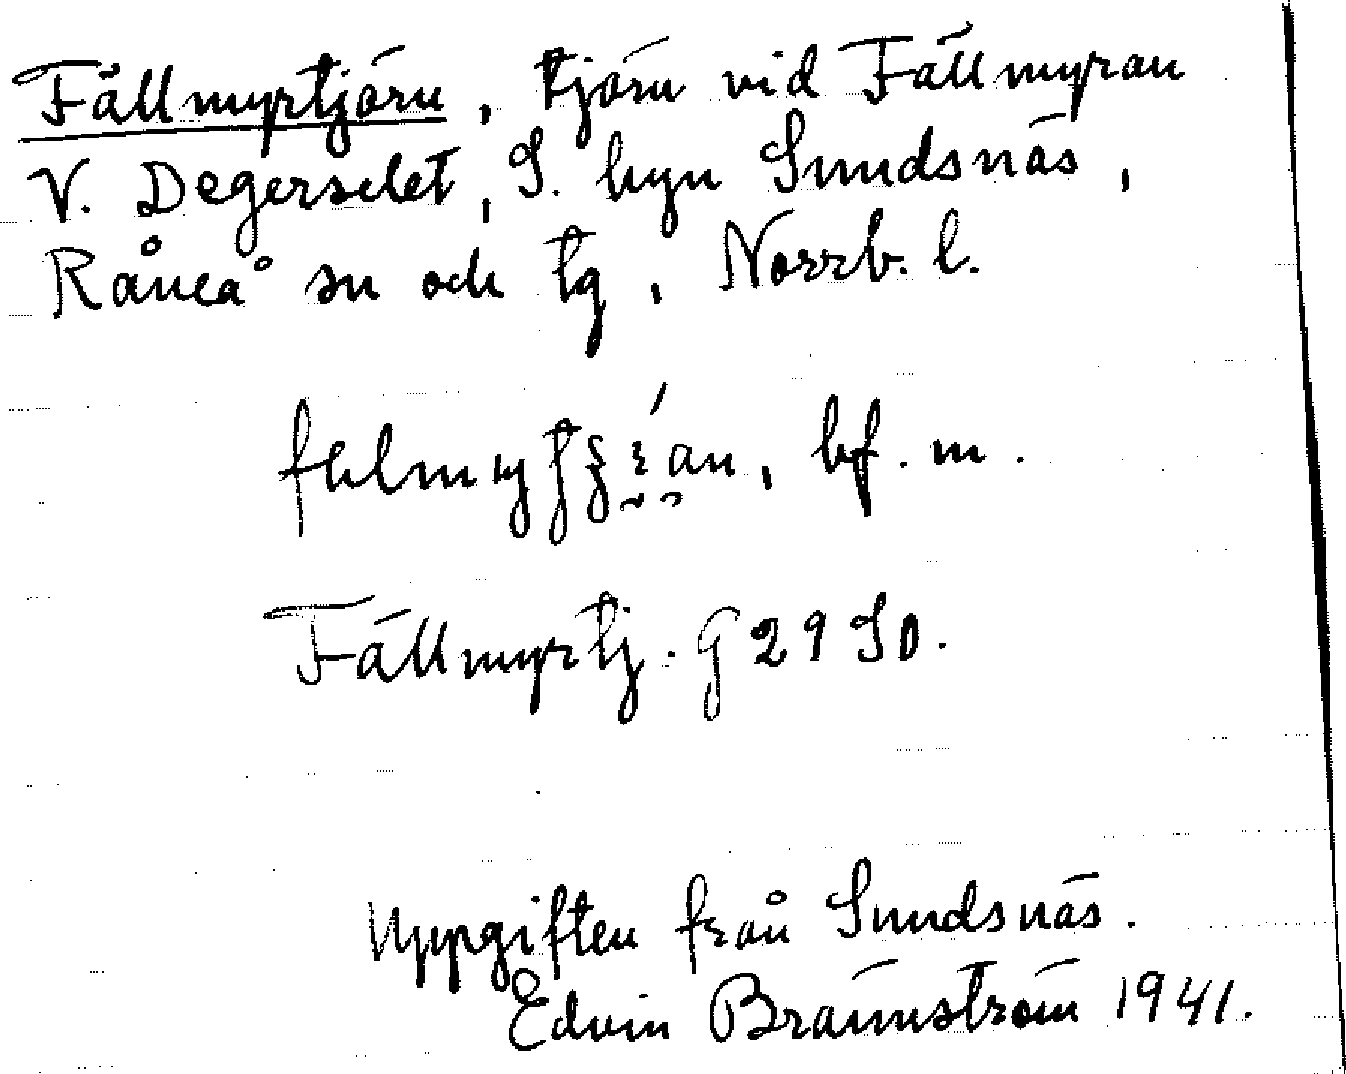 Fällmyrtjärn, tjärn vid Fällmyran
V. Degerselet, S. byn Sundsnäs,
Råneå sn och tg, Norrb. l.
bf. m.
Fällmyrtj. G 29 SO.
Uppgiften från Sundsnäs.
Edvin Brännström 1941.